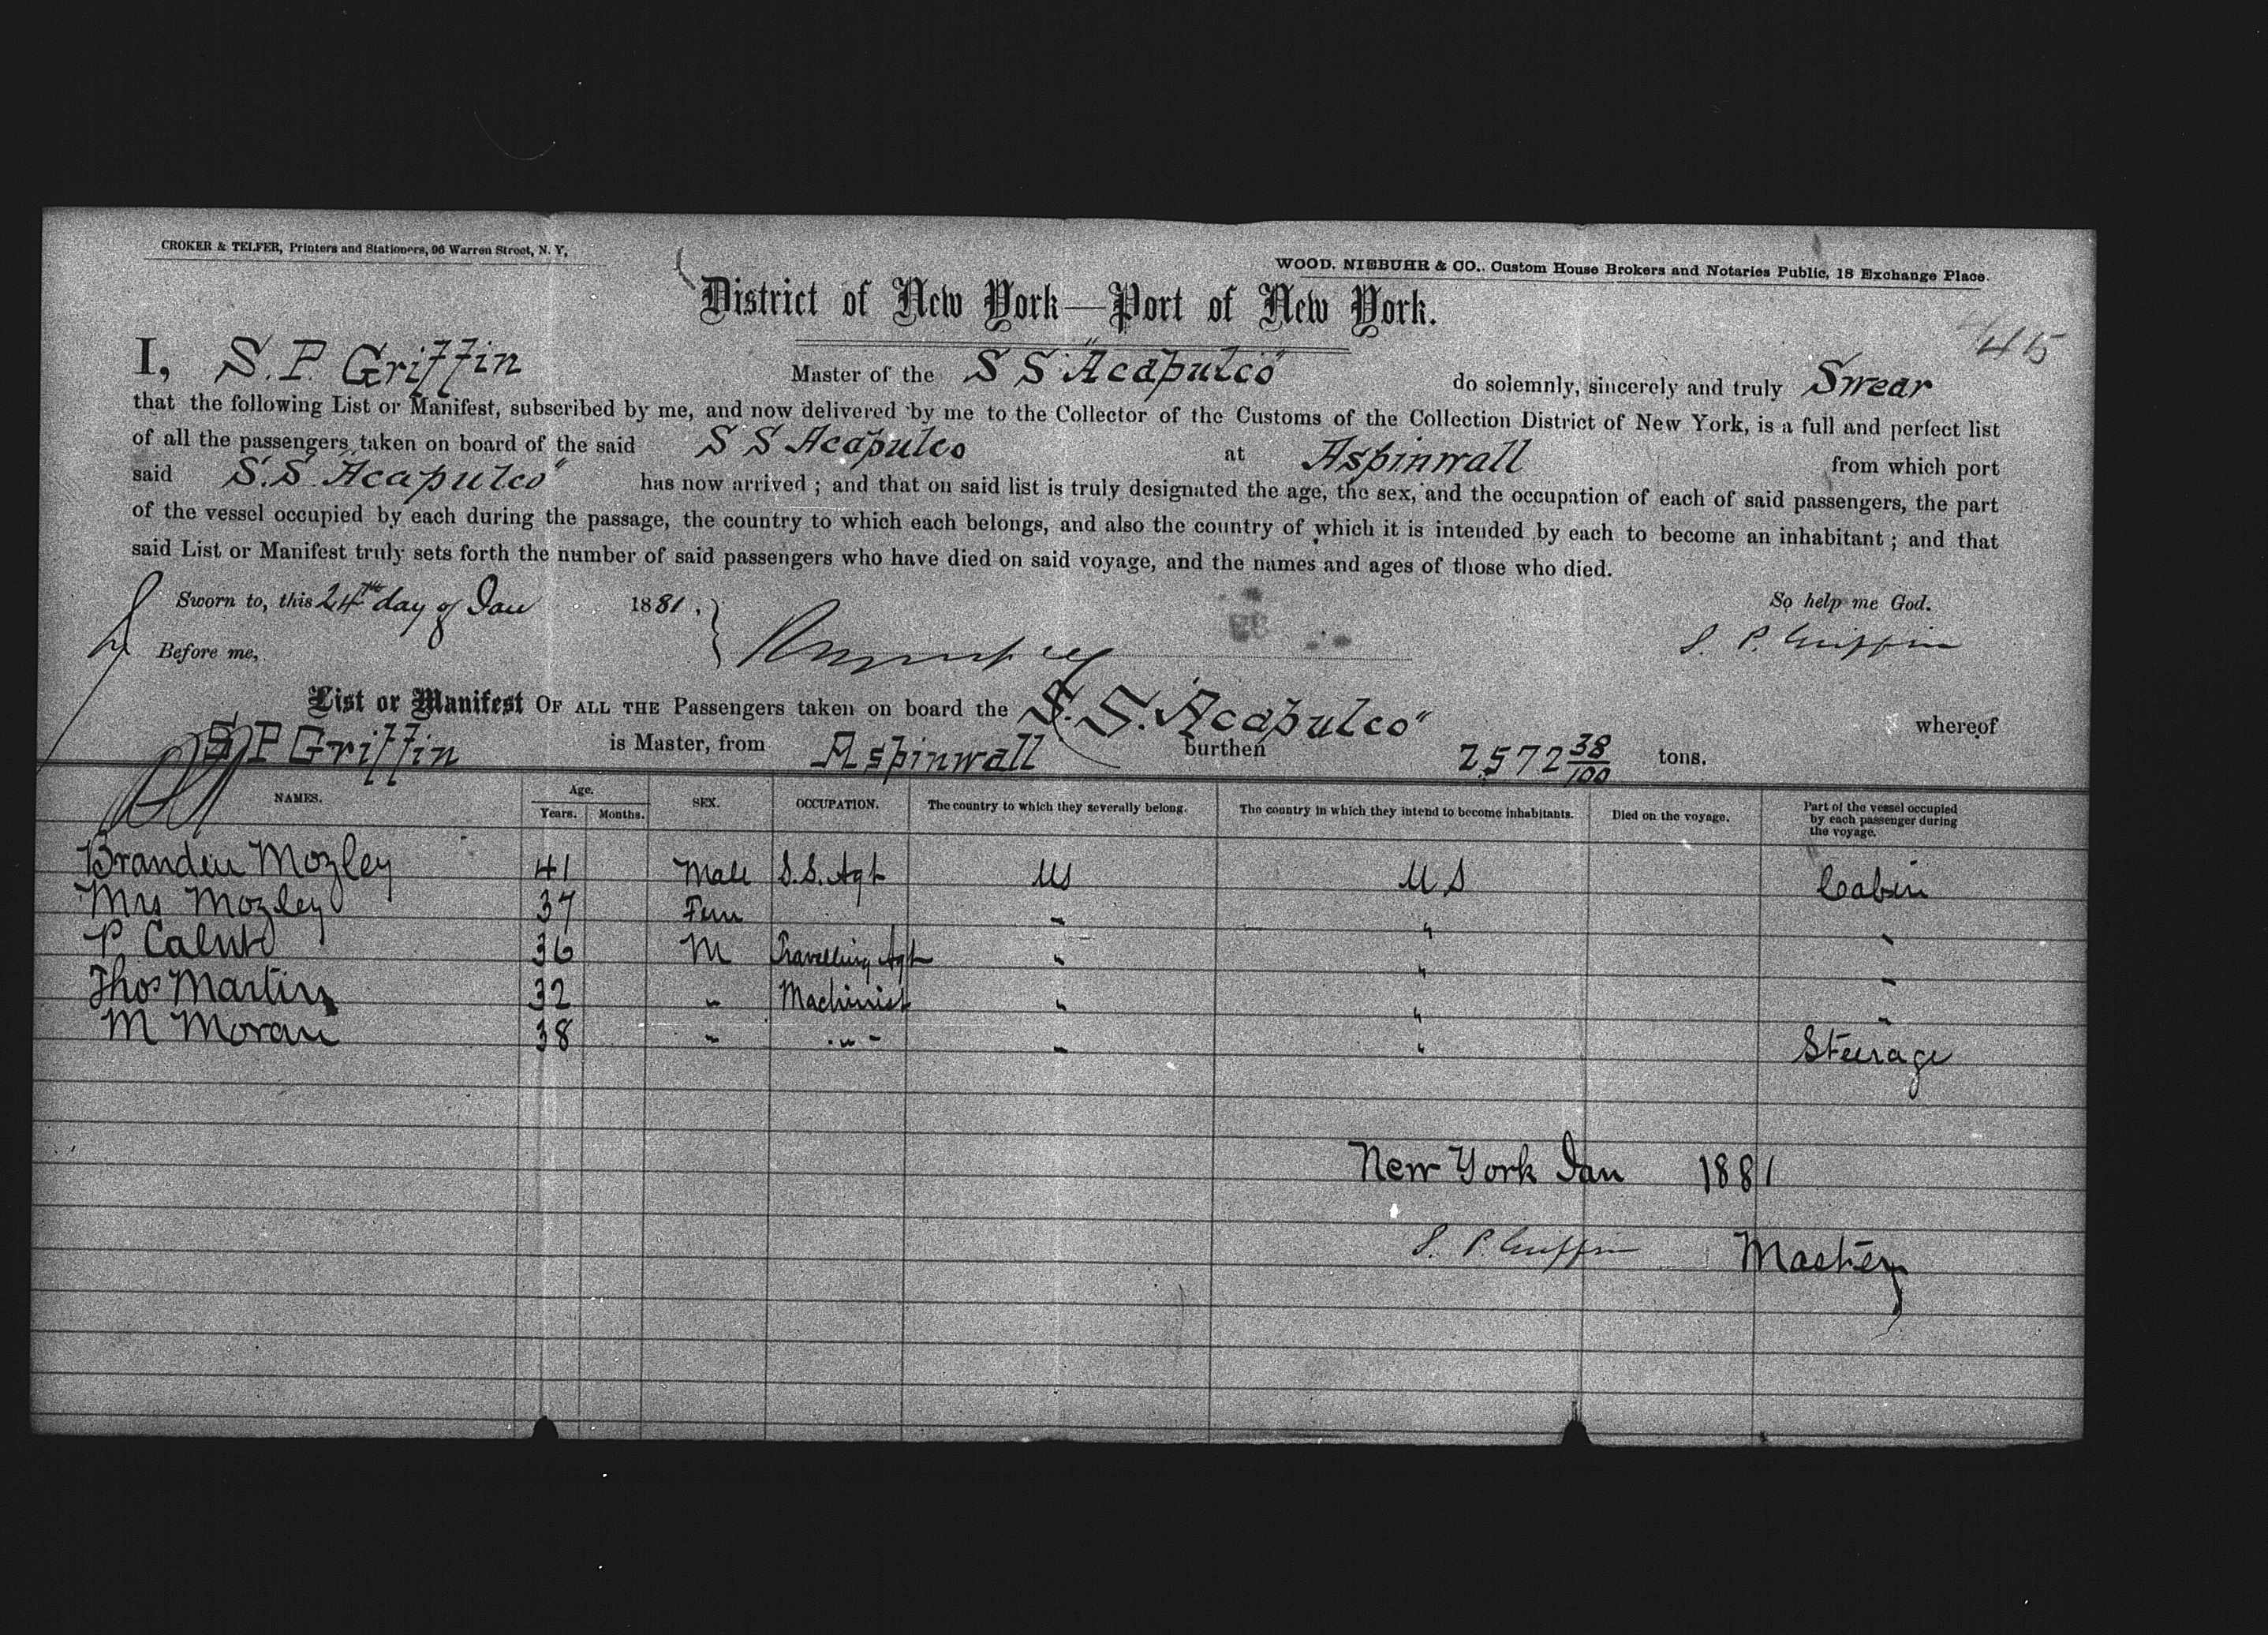 CROKER & TELFER, Printers and Stationers, 96 Warren Street, N. Y,
WOOD, NIEBUHR & CO., Custom House Brokers and Notaries Public, 18 Exchange Place.
District of New York—Port of New York.
415
I, S. P. Griffin Master of the S S "Acapulco" do solemnly, sincerely and truly Swear
that the following List or Manifest, subscribed by me, and now delivered by me to the Collector of the Customs of the Collection District of New York, is a full and perfect list
of all the passengers taken on board of the said S S Acapulco at Aspinwall from which port
said S. S. "Acapulco" has now arrived ; and that on said list is truly designated the age, the sex, and the occupation of each of said passengers, the part
of the vessel occupied by each during the passage, the country to which each belongs, and also the country of which it is intended by each to become an inhabitant ; and that
said List or Manifest truly sets forth the number of said passengers who have died on said voyage, and the names and ages of those who died.
Sworn to, this 24th day of Jan 1881, So help me God.
Before me, S. P. Griffin
List or Manifest OF ALL THE Passengers taken on board the S. S. "Acapulco" whereof
S P Griffin is Master, from Aspinwall burthen 2572 38/100 tons.
NAMES. Age. Years. Months. SEX. OCCUPATION. The country to which they severally belong. The country in which they intend to become inhabitants. Died on the voyage. Part of the vessel occupied by each passenger during the voyage.
Mozley 41 Male S.S. Agt US U S Cabin
Mrs Mozley 37 Fem " " "
P 36 M Travelling Agt " " "
Thos Martin 32 " Machinist " " "
M Moran 38 " " " " Steerage
New York Jan 1881
S. P. Griffin Master